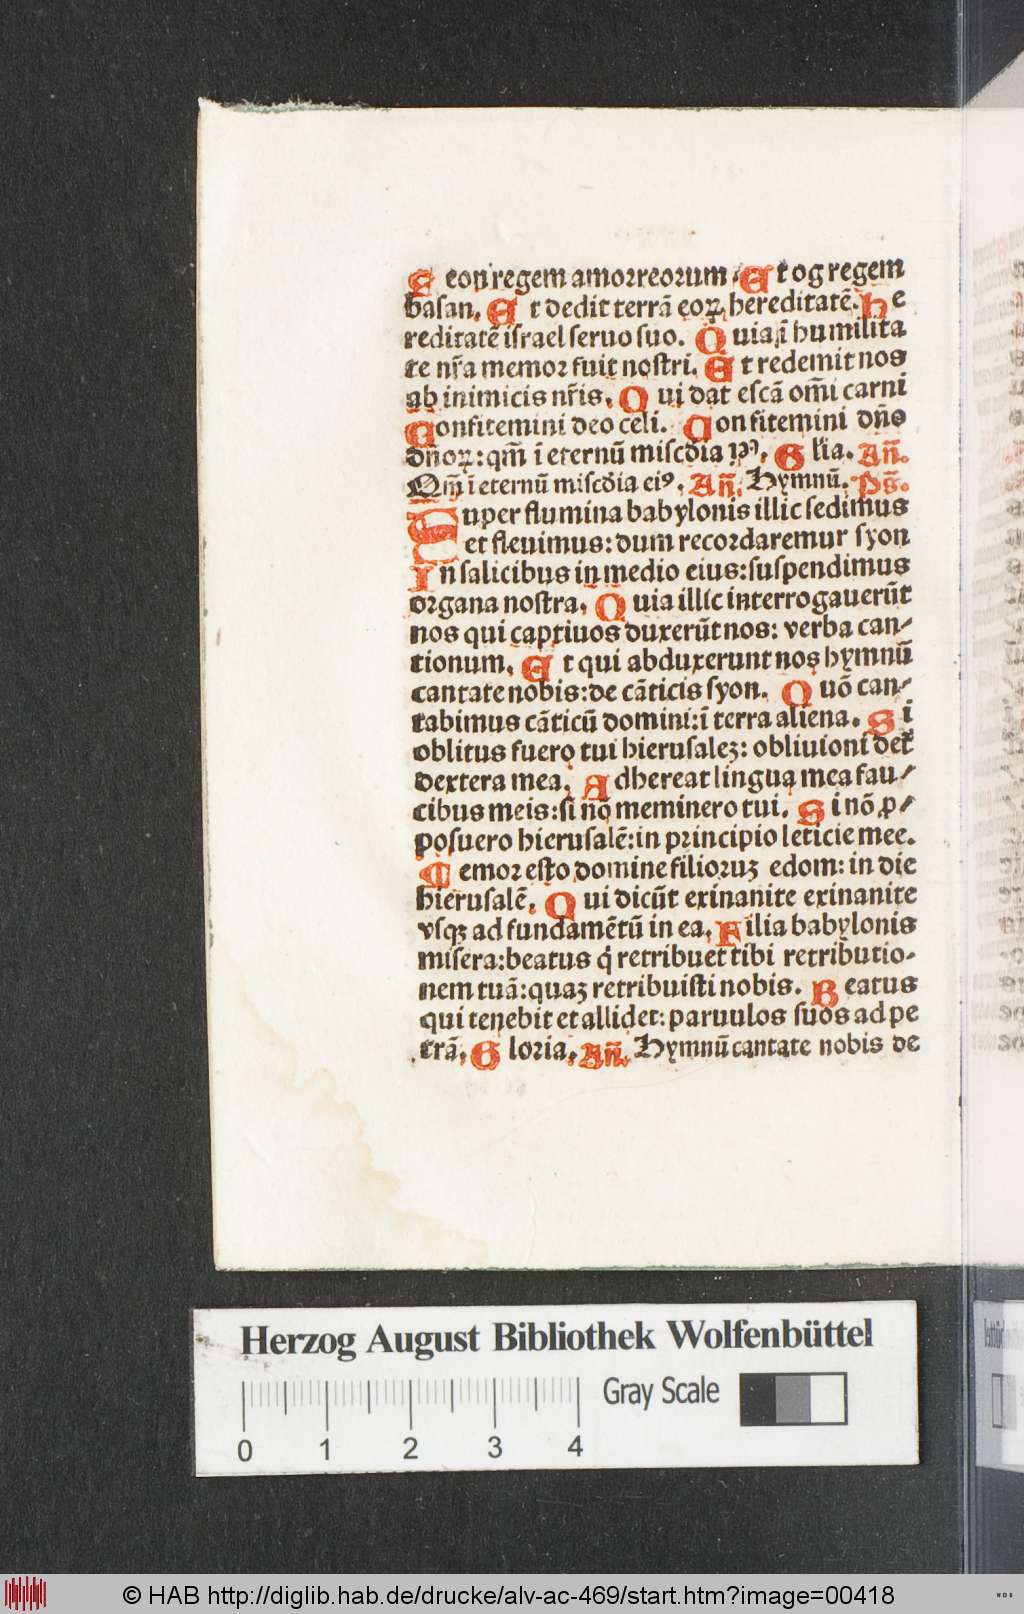 Seon regem amorreorum: Et og regem
basan. Et dedit terrā eoꝝ hereditatē. He
reditatē israel seruo suo. Quia ī humilita
te nr̄a memor fuit nostri. Et redemit nos
ab inimicis nr̄is. Qui dat escā om̄i carni
Confitemini deo celi. Confitemini dn̄o
dn̄oꝝ: qm̄ ī eternū misc̄dia Glīa. An̄.
Qm̄ ī eternū misc̄dia eiꝰ. An̄. Hymnū. Ps̄.
Super flumina babylonis illic sedimus
et fleuimus: dum recordaremur syon
In salicibus in medio eius: suspendimus
organa nostra. Quia illic interrogauerūt
nos qui captiuos duxerūt nos: verba can-
tionum. Et qui abduxerunt nos hymnū
cantate nobis: de cāticis syon. Quō can-
tabimus cāticū domini: ī terra aliena. Si
oblitus fuero tui hierusaleꝫ: obliuioni det̄
dextera mea. Adhereat lingua mea fau-
cibus meis: si nō meminero tui. Si nō ꝓ-
posuero hierusalē: in principio leticie mee.
Memor esto domine filioruꝫ edom: in die
hierusalē. Qui dicūt exinanite exinanite
vsqꝫ ad fundamētū in ea. Filia babylonis
misera: beatus q̇ retribuet tibi retributio-
nem tuā: quaꝫ retribuisti nobis. Beatus
qui tenebit et allidet: paruulos suos ad pe
trā. Gloria. An̄. Hymnū cantate nobis de
Herzog August Bibliothek Wolfenbüttel
Gray Scale
0 1 2 3 4
© HAB http://diglib.hab.de/drucke/alv-ac-469/start.htm?image=00418